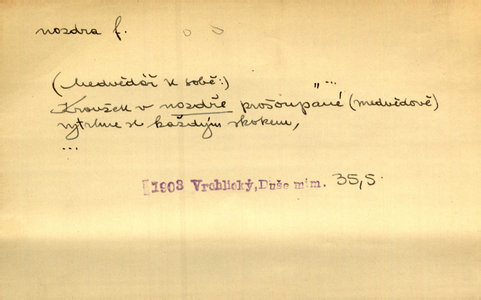 nozdra f.
(Medvědář k sobě:) „...
Kroužek v nozdře prošoupané (medvědově)
vytrhne se každým skokem,
...
1903 Vrchlický, Duše mim. 35,5.